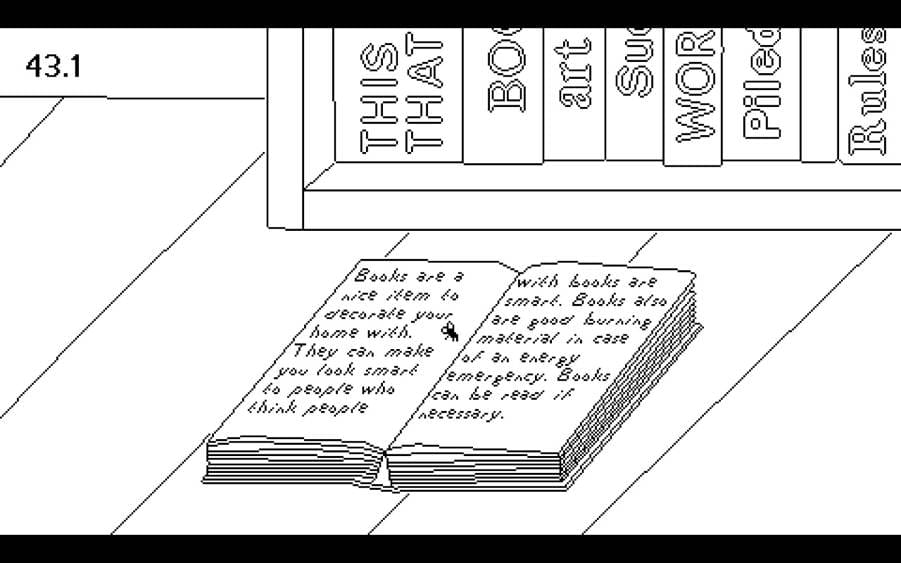 43.1
THIS
THAT
BOO
art
Suc
WOR
Piled
Rules
Books are a
nice item to
decorate your
home with.
They can make
you look smart
to people who
think people
with books are
smart. Books also
are good burning
material in case
of an energy
emergency. Books
can be read if
necessary.